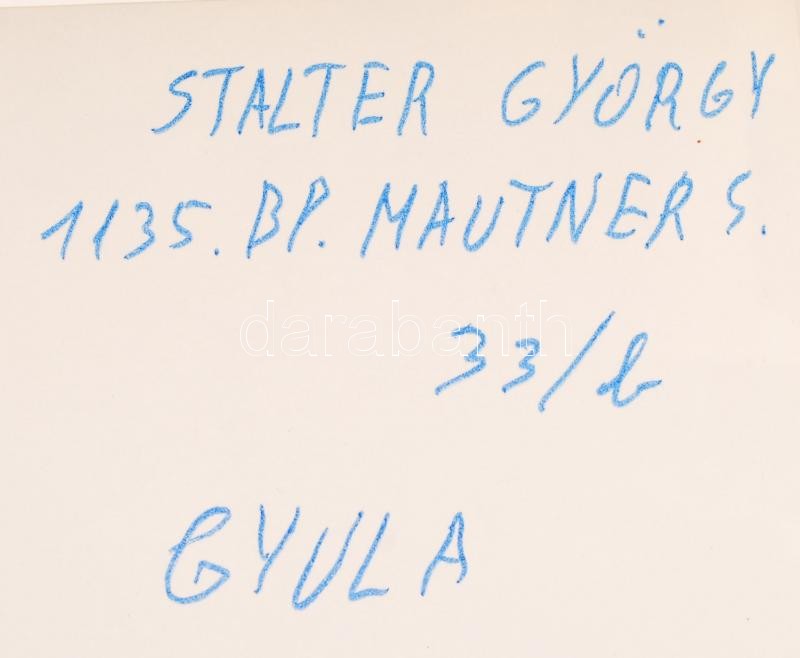 STALTER GYÖRGY
1135. BP. MAUTNER S.
darabanth
33/b
GYULA